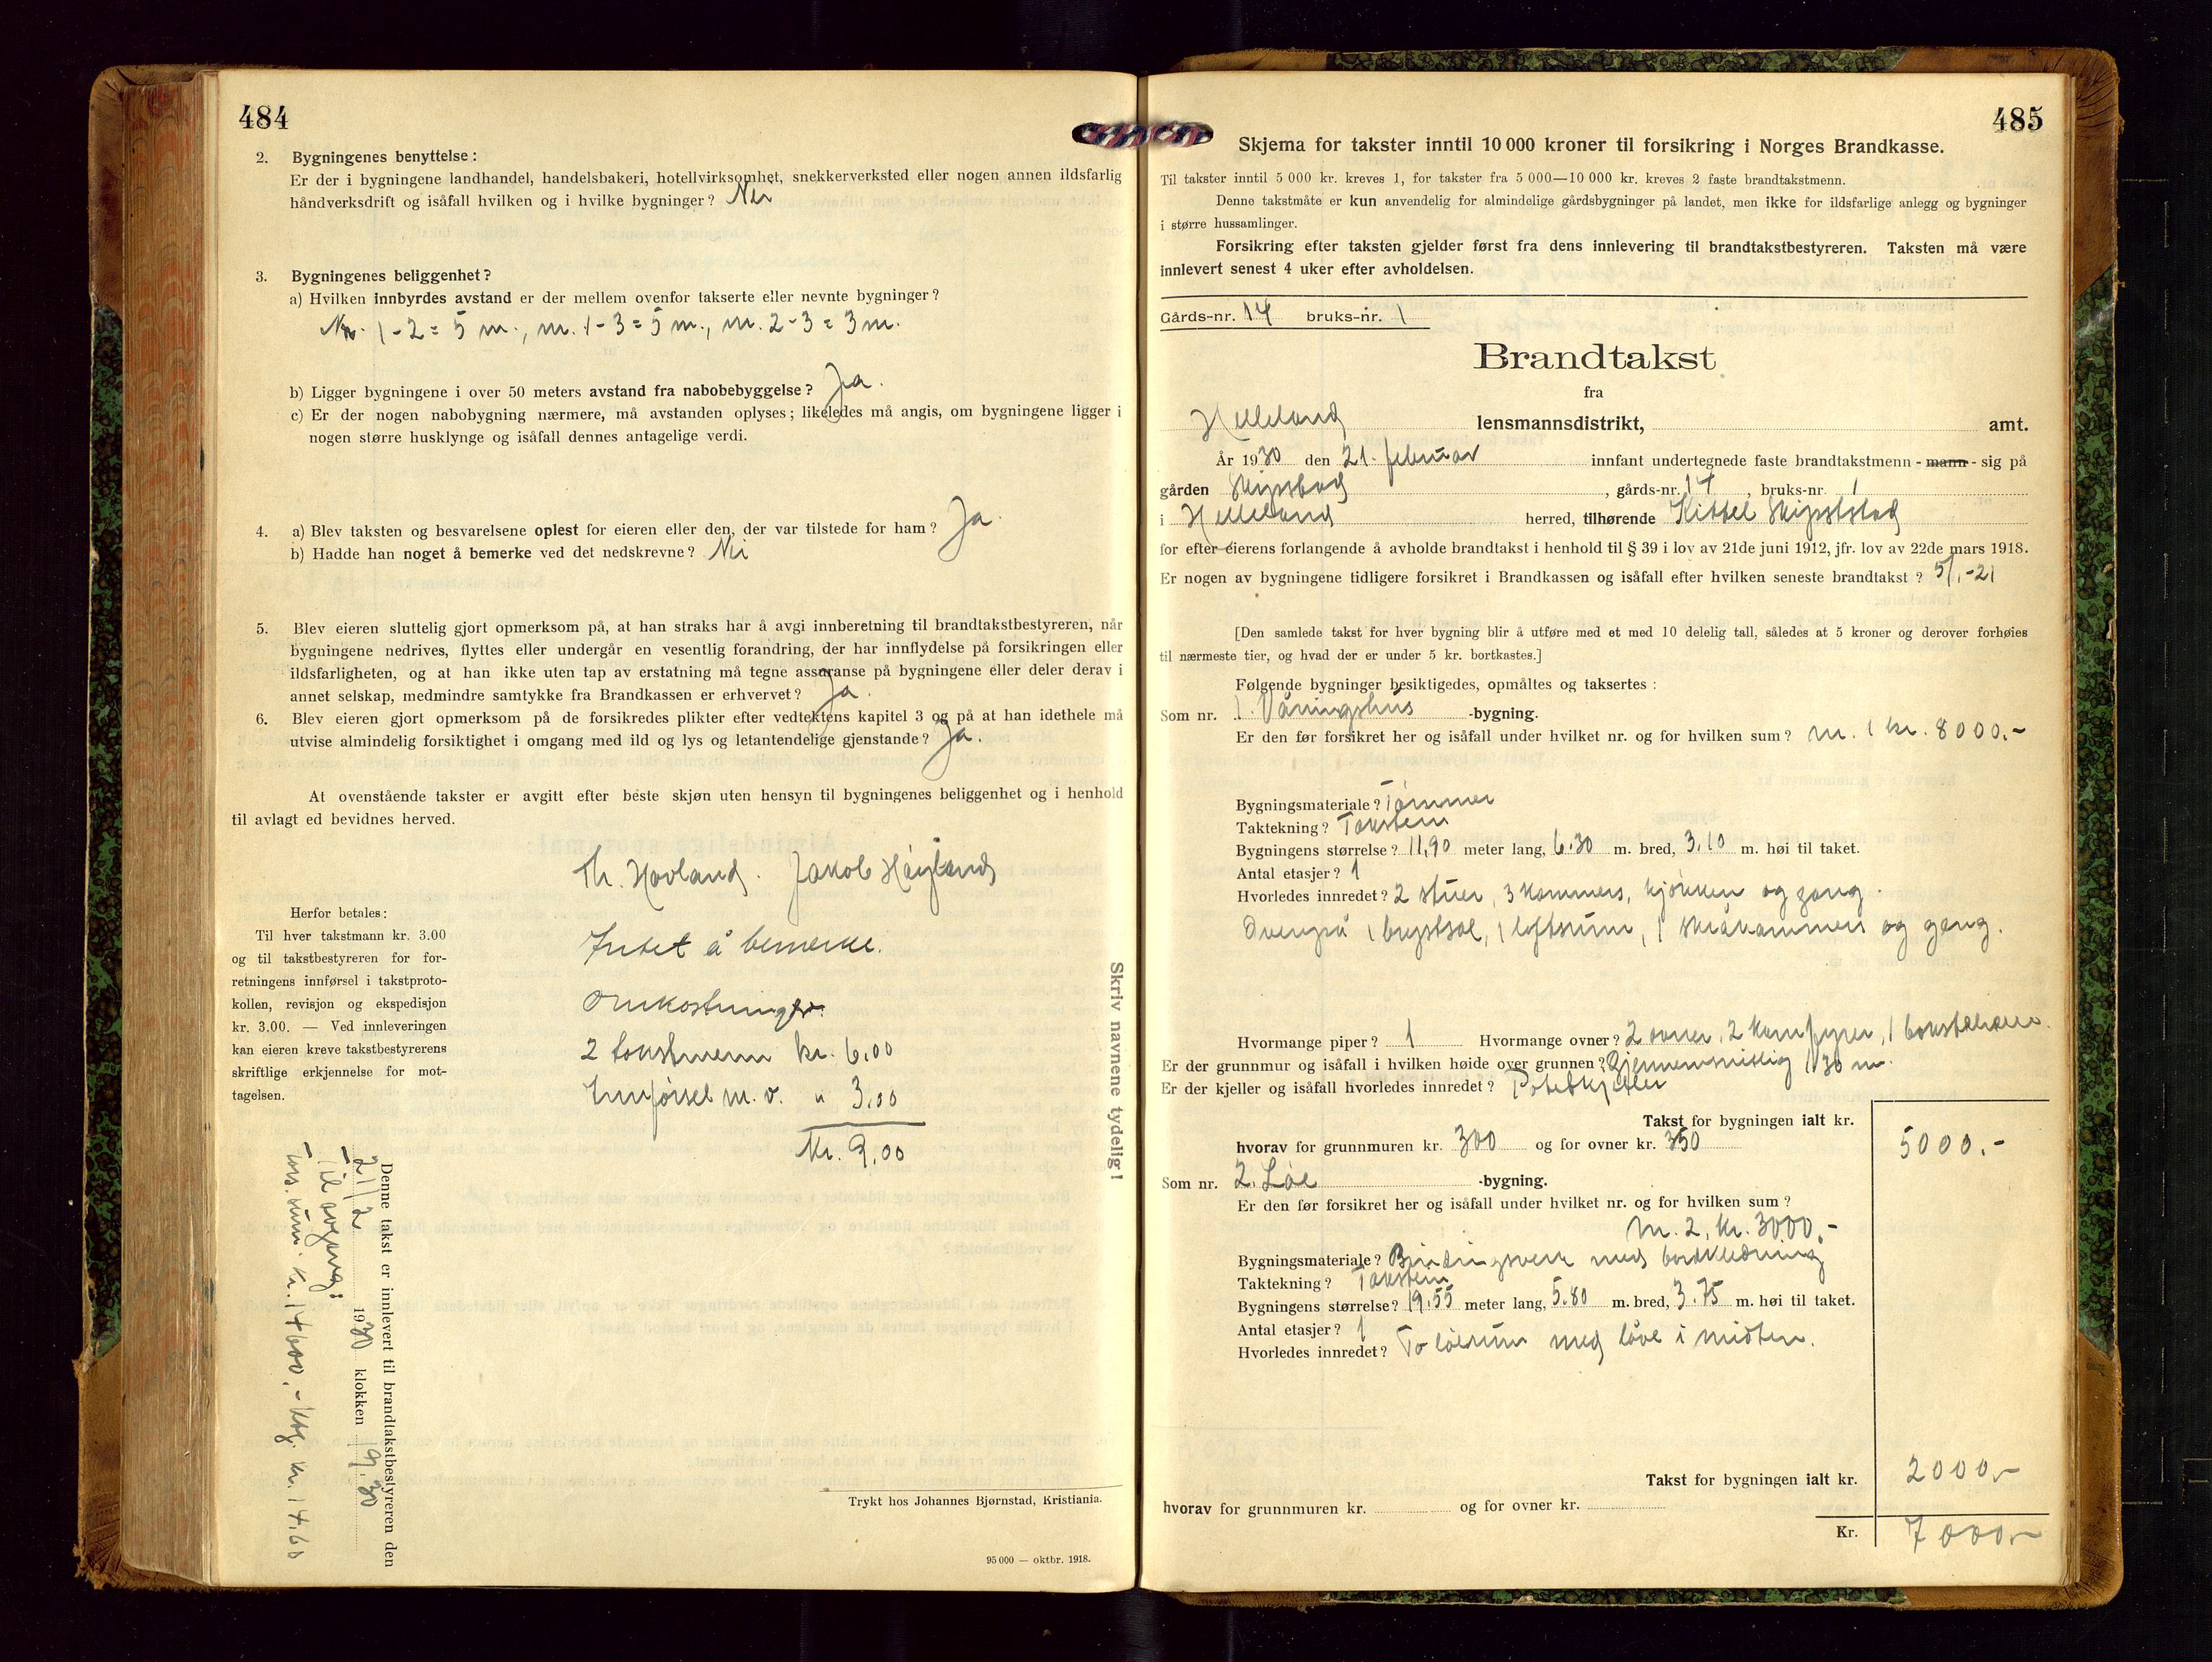 484
2. Bygningenes benyttelse:
Er der i bygningene landhandel, handelsbakeri, hotellvirksomhet, snekkerverksted eller nogen annen ildsfarlig
håndverksdrift og isåfall hvilken og i hvilke bygninger? Nei
3. Bygningenes beliggenhet?
a) Hvilken innbyrdes avstand er der mellem ovenfor takserte eller nevnte bygninger?
Nr. 1-2 = 5 m., nr. 1-3 = 5 m., nr. 2-3 = 3 m.
b) Ligger bygningene i over 50 meters avstand fra nabobebyggelse? Ja.
c) Er der nogen nabobygning nærmere, må avstanden oplyses; likeledes må angis, om bygningene ligger i
nogen større husklynge og isåfall dennes antagelige verdi.
4. a) Blev taksten og besvarelsene oplest for eieren eller den, der var tilstede for ham? Ja.
b) Hadde han noget å bemerke ved det nedskrevne? Nei
5. Blev eieren sluttelig gjort opmerksom på, at han straks har å avgi innberetning til brandtakstbestyreren, når
bygningene nedrives, flyttes eller undergår en vesentlig forandring, der har innflydelse på forsikringen eller
ildsfarligheten, og at han ikke uten tap av erstatning må tegne assuranse på bygningene eller deler derav i
annet selskap, medmindre samtykke fra Brandkassen er erhvervet? Ja.
6. Blev eieren gjort opmerksom på de forsikredes plikter efter vedtektens kapitel 3 og på at han idethele må
utvise almindelig forsiktighet i omgang med ild og lys og letantendelige gjenstande? Ja.
At ovenstående takster er avgitt efter beste skjøn uten hensyn til bygningenes beliggenhet og i henhold
til avlagt ed bevidnes herved.
Th. Hovland. Jakob Høyland
Herfor betales:
Til hver takstmann kr. 3.00
og til takstbestyreren for for-
retningens innførsel i takstproto-
kollen, revisjon og ekspedisjon
kr. 3.00. — Ved innleveringen
kan eieren kreve takstbestyrerens
skriftlige erkjennelse for mot-
tagelsen.
Intet å bemerke.
Omkostninger.
2 takstmenn kr. 6.00
Innførsel m. v. " 3.00
Kr. 9.00
Skriv navnene tydelig!
Denne takst er innlevert til brandtakstbestyreren den
21/2 1930 klokken 19.30
Til avgang:
kr. 14600,- kr. 14.60
Trykt hos Johannes Bjørnstad, Kristiania.
95 000 — oktbr. 1918.
485
Skjema for takster inntil 10 000 kroner til forsikring i Norges Brandkasse.
Til takster inntil 5 000 kr. kreves 1, for takster fra 5 000—10 000 kr. kreves 2 faste brandtakstmenn.
Denne takstmåte er kun anvendelig for almindelige gårdsbygninger på landet, men ikke for ildsfarlige anlegg og bygninger
i større hussamlinger.
Forsikring efter taksten gjelder først fra dens innlevering til brandtakstbestyreren. Taksten må være
innlevert senest 4 uker efter avholdelsen.
Gårds-nr. 14 bruks-nr. 1
Brandtakst
fra
Helleland lensmannsdistrikt, amt.
År 1930 den 21. februar innfant undertegnede faste brandtakstmenn - mann - sig på
gården Skipstad, gårds-nr. 14, bruks-nr. 1
i Helleland herred, tilhørende Kittel Skipstad
for efter eierens forlangende å avholde brandtakst i henhold til § 39 i lov av 21de juni 1912, jfr. lov av 22de mars 1918.
Er nogen av bygningene tidligere forsikret i Brandkassen og isåfall efter hvilken seneste brandtakst? 5/1-21
[Den samlede takst for hver bygning blir å utføre med et med 10 delelig tall, således at 5 kroner og derover forhøies
til nærmeste tier, og hvad der er under 5 kr. bortkastes.]
Følgende bygninger besiktigedes, opmåltes og taksertes:
Som nr. 1. Våningshus -bygning.
Er den før forsikret her og isåfall under hvilket nr. og for hvilken sum? nr. 1 kr. 8000.-
Bygningsmateriale? Tømmer
Taktekning? Takstein
Bygningens størrelse? 11,90 meter lang, 6.30 m. bred, 3.10 m. høi til taket.
Antal etasjer? 1
Hvorledes innredet? 2 stuer, 3 kammers, kjøkken og gang.
Ovenpå 1 brystsal, 1 loftsrum, 1 skråkammers og gang.
Hvormange piper? 1 Hvormange ovner? 2 ovner, 2 komfyrer, 1 bakstehelle.
Er der grunnmur og isåfall i hvilken høide over grunnen? Gjennemsnitlig 1,30 m.
Er der kjeller og isåfall hvorledes innredet? Potetkjeller
Takst for bygningen ialt kr.
hvorav for grunnmuren kr. 300 og for ovner kr. 350 5000.-
Som nr. 2. Løe -bygning.
Er den før forsikret her og isåfall under hvilket nr. og for hvilken sum?
nr. 2, kr. 3000.-
Bygningsmateriale? Bindingsverk med bordkledning
Taktekning? Takstein
Bygningens størrelse? 19.55 meter lang, 5.80 m. bred, 3.75 m. høi til taket.
Antal etasjer? 1
Hvorledes innredet? To løerum med låve i midten.
Takst for bygningen ialt kr. 2000.-
hvorav for grunnmuren kr. og for ovner kr.
Kr. 7000.-